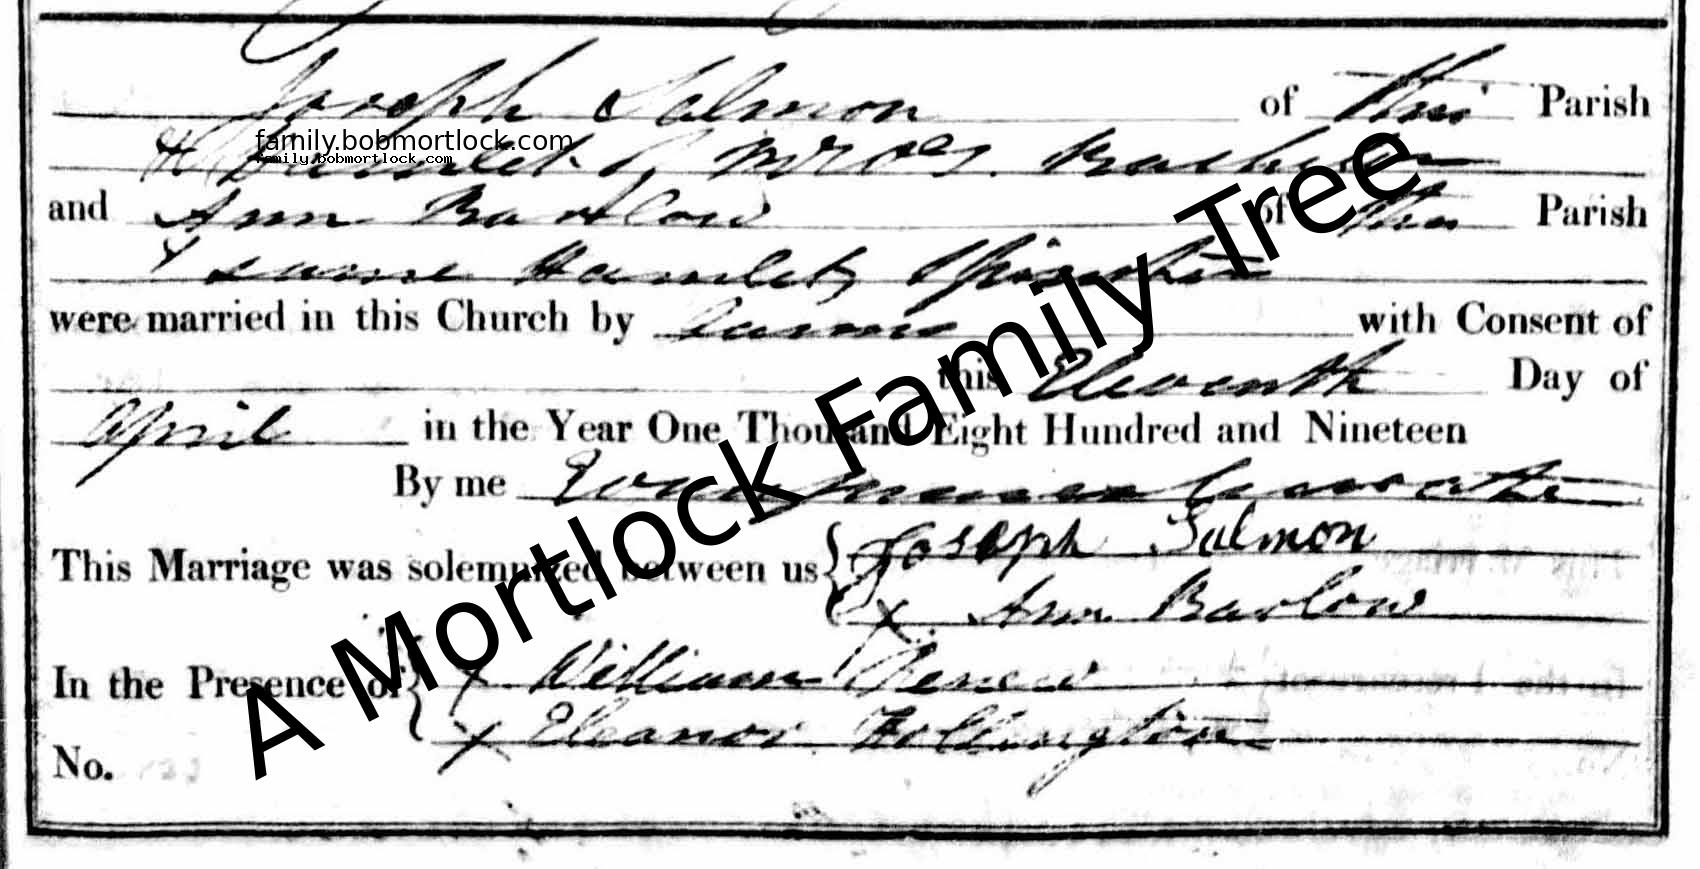 Joseph Salmon of this Parish
family.bobmortlock.com
family.bobmortlock.com
& Hamlet of
and Ann Barlow of this Parish
& same Hamlet, Spinster
were married in this Church by Banns with Consent of
this Eleventh Day of
April in the Year One Thousand Eight Hundred and Nineteen
By me
This Marriage was solemnized between us { Joseph Salmon
x Ann Barlow
In the Presence of { x William
x Eleanor Hollington
No.
A Mortlock Family Tree